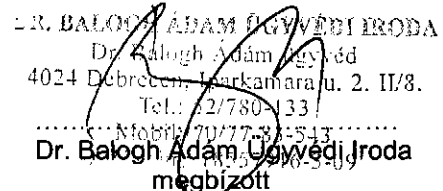 DR. BALOGH ÁDÁM ÜGYVÉDI IRODA
Dr. Balogh Ádám ügyvéd
4024 Debrecen, Iparkamara u. 2. II/8.
Tel.: 52/780-133
Mobil: 70/77-88-543
Dr. Balogh Ádám Ügyvédi Iroda
megbízott